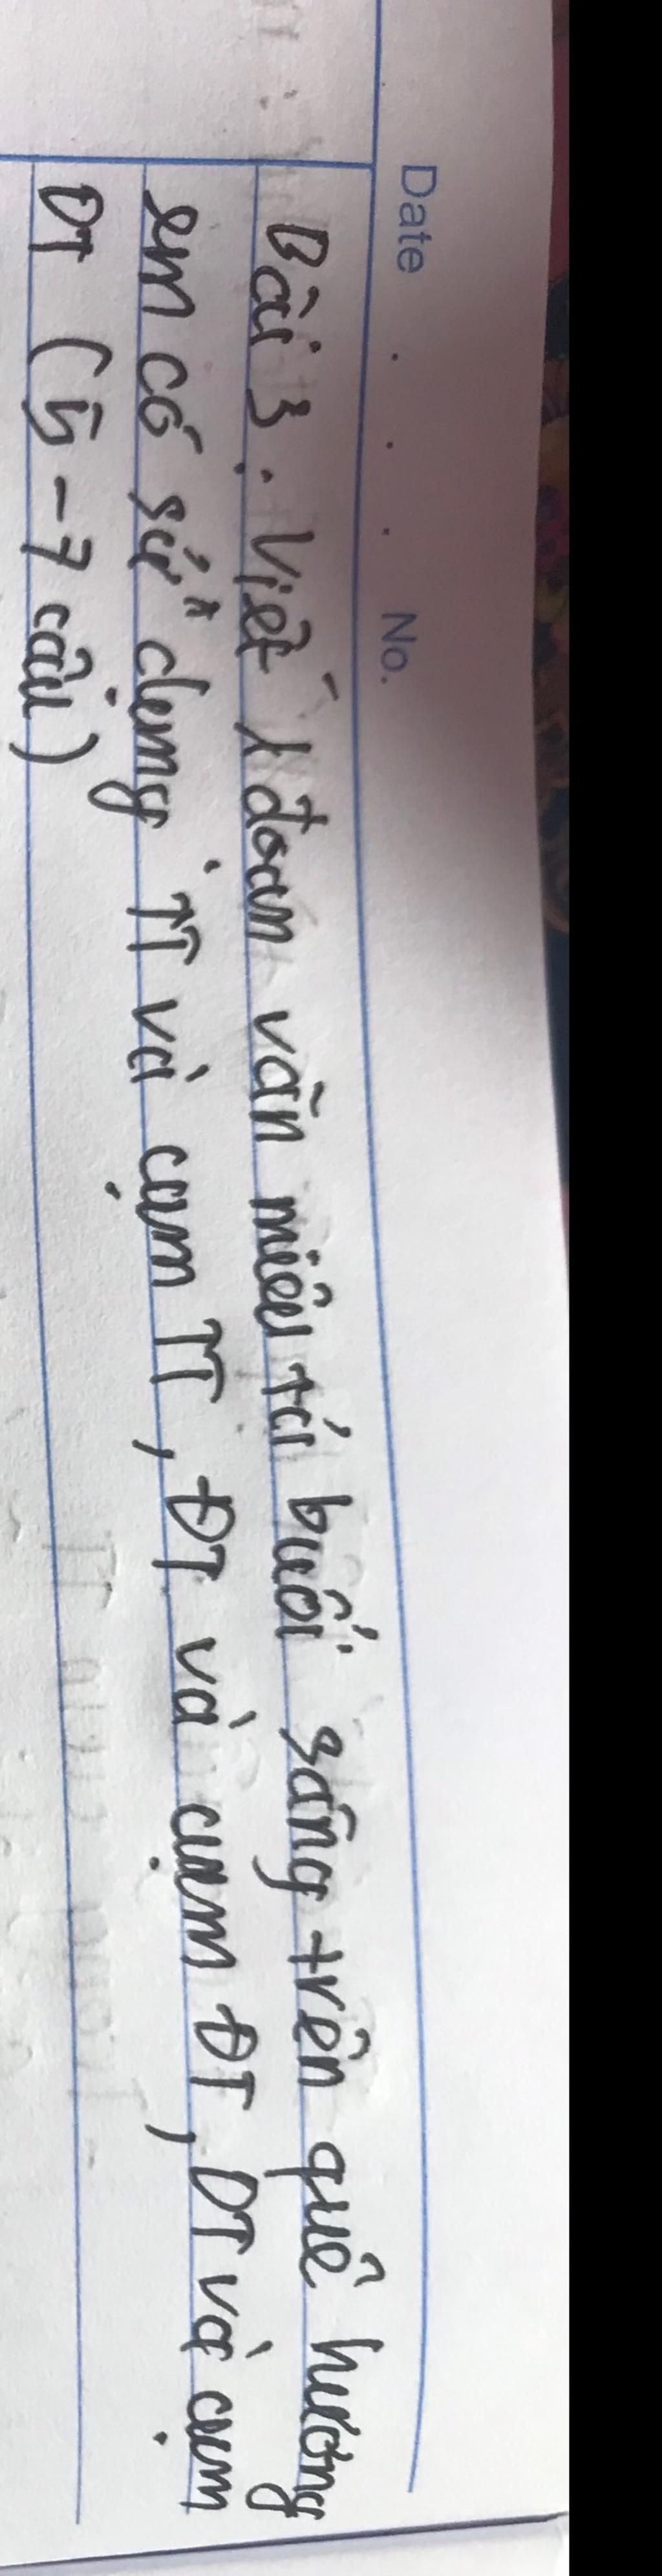 Date . . . No.
Bài 3. Viết 1 đoạn văn miêu tả buổi sáng trên quê hương
em có sử dụng TT và cụm TT, ĐT và cụm ĐT, DT và cụm
DT (5-7 câu)